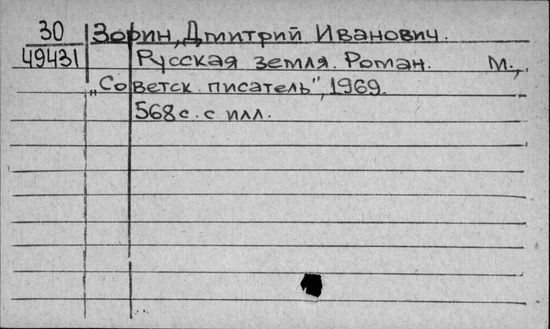 30 Зорин, Дмитрий Иванович.
49431 Русская земля. Роман. М.,
„Советск. писатель", 1969.
568с. с илл.